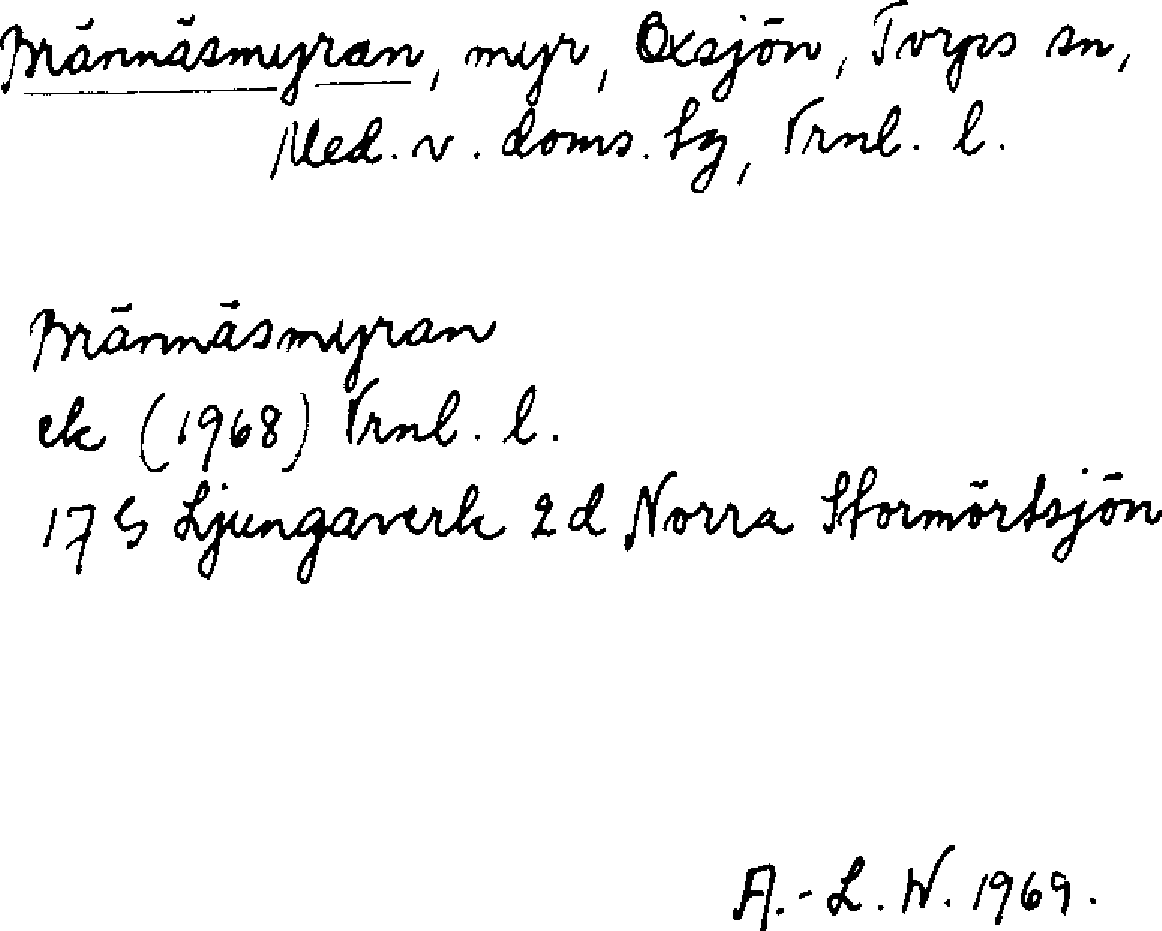 Brännäsmyran, myr, Oxsjön, Torps sn,
Med. v. doms. tg, Vrnl. l.
Brännäsmyran
ek (1968) Vrnl. l.
17 G Ljungaverk 2d Norra Stormörtsjön
A.-L. W. 1969.